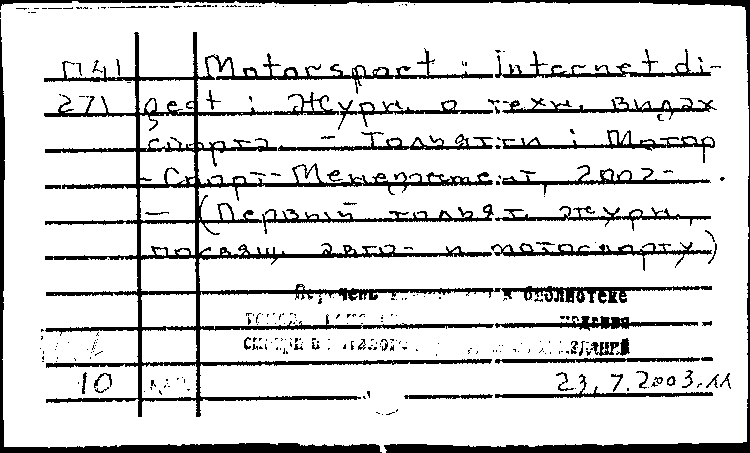 П41 Motorsport : internet di-
271 gest : Журн. о техн. видах
спорта. - Тольятти : Мотор
-Спорт-Менеджмент, 2002- .
- (Первый тольят. журн.,
посвящ. авто- и мотоспорту)
Перечень в библиотеке
издания
смотри в изданий
10 23.7.2003.